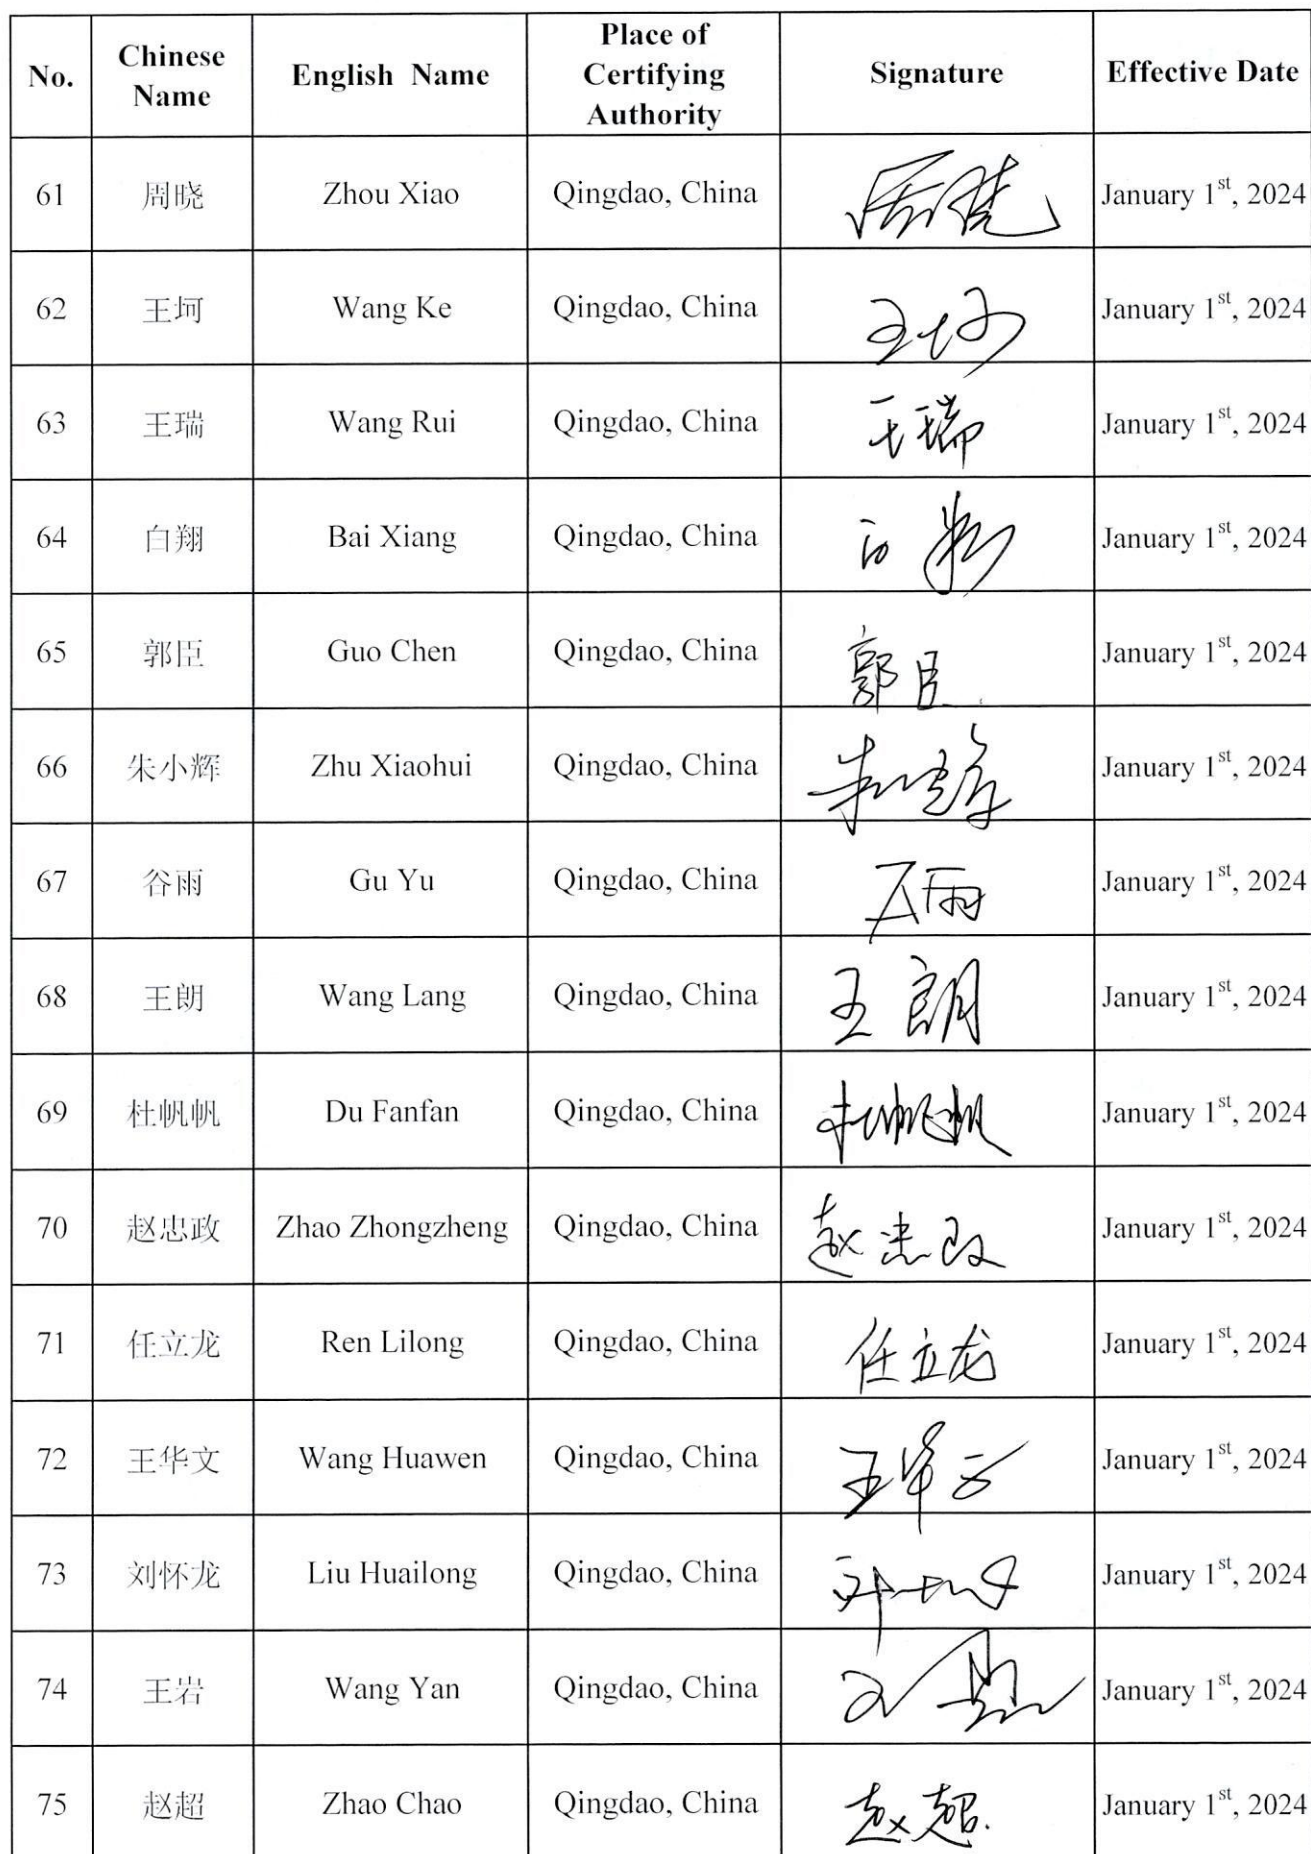 No. Chinese Name English Name Place of Certifying Authority Signature Effective Date
61 周晓 Zhou Xiao Qingdao, China 周晓 January 1st, 2024
62 王坷 Wang Ke Qingdao, China 王坷 January 1st, 2024
63 王瑞 Wang Rui Qingdao, China 王瑞 January 1st, 2024
64 白翔 Bai Xiang Qingdao, China 白翔 January 1st, 2024
65 郭臣 Guo Chen Qingdao, China 郭臣 January 1st, 2024
66 朱小辉 Zhu Xiaohui Qingdao, China January 1st, 2024
67 谷雨 Gu Yu Qingdao, China 谷雨 January 1st, 2024
68 王朗 Wang Lang Qingdao, China 王朗 January 1st, 2024
69 杜帆帆 Du Fanfan Qingdao, China 杜帆帆 January 1st, 2024
70 赵忠政 Zhao Zhongzheng Qingdao, China 赵忠政 January 1st, 2024
71 任立龙 Ren Lilong Qingdao, China 任立龙 January 1st, 2024
72 王华文 Wang Huawen Qingdao, China 王华文 January 1st, 2024
73 刘怀龙 Liu Huailong Qingdao, China January 1st, 2024
74 王岩 Wang Yan Qingdao, China January 1st, 2024
75 赵超 Zhao Chao Qingdao, China 赵超 January 1st, 2024